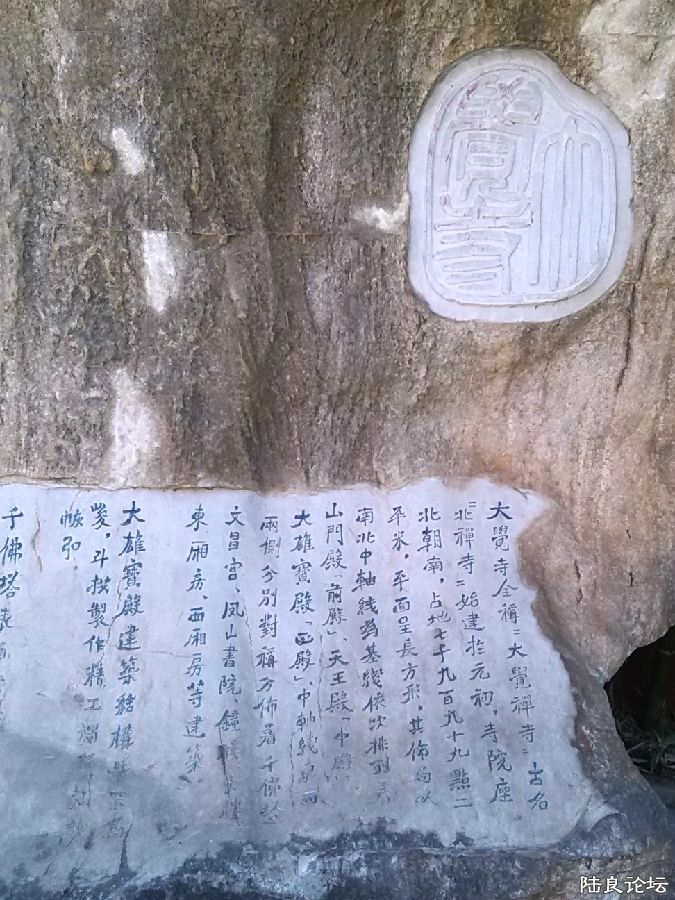 大覺寺
大覺寺全稱“大覺禪寺”古名
“北禪寺”始建於元初，寺院座
北朝南，占地七千九百九十九點二
平米，平面呈長方形，其佈局以
南北中軸线為基綫依次排列着
山門殿「前殿」、天王殿「中殿」、
大雄寶殿、「西殿」中軸线東西
兩側分別對稱分佈着千佛塔
文昌宮、凤山書院、鐘樓
東厢房、西厢房等建築。
大雄寶殿建築結構
斗拱製作精工
恢弘。
千佛塔
陆良论坛